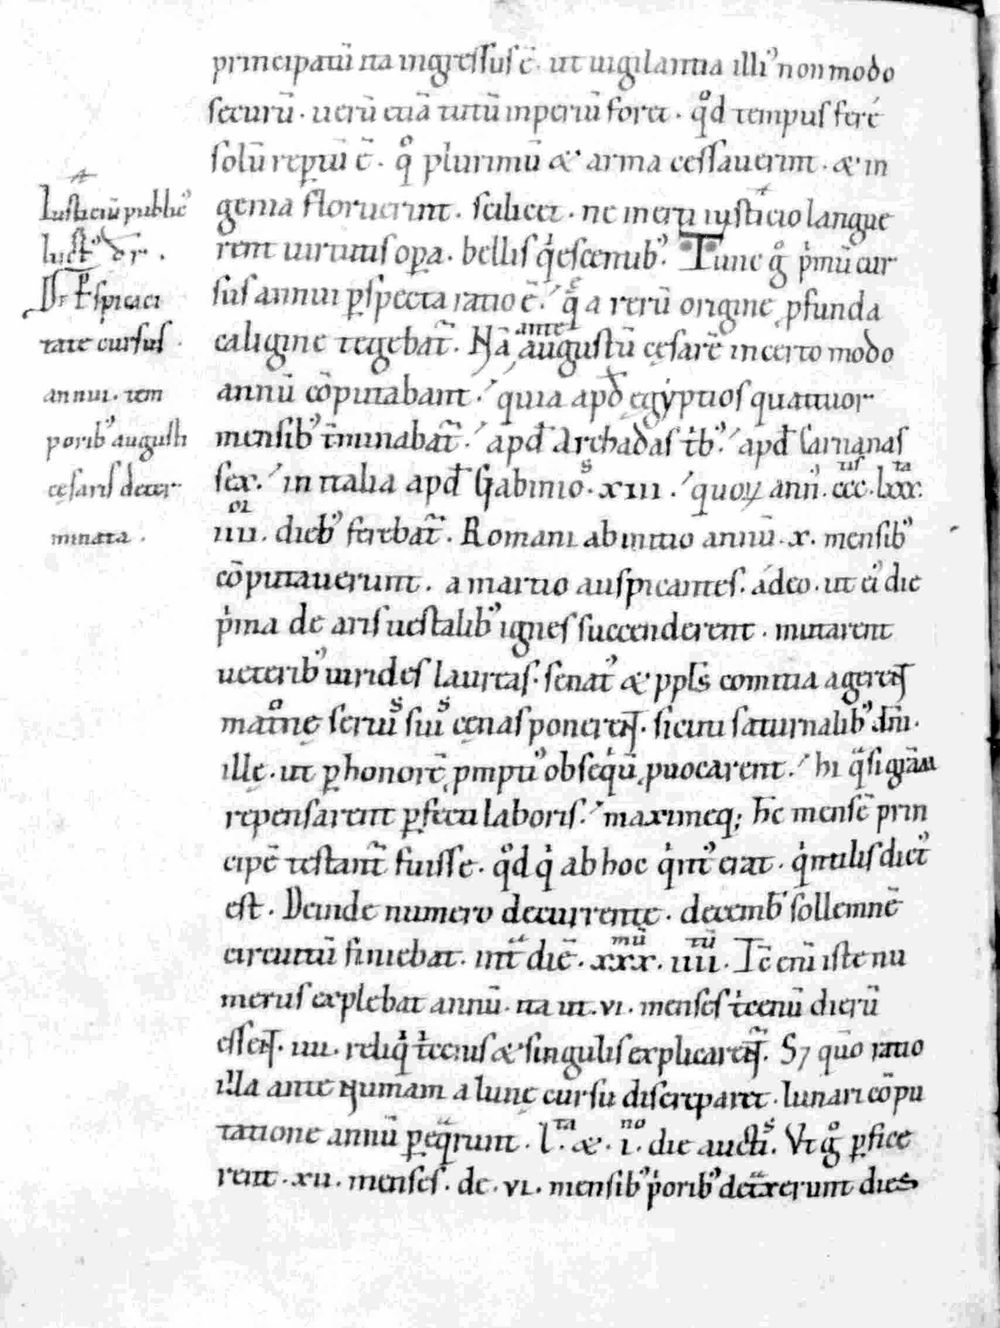 principatū ita ingressus ē. ut uigilantia illi' non modo
securū. uerū etiā tutū imperiū foret. qͦd tempus ferė
solū reptū ē. qͦ plurimū & arma cessauerint. & in
genia floruerint. scilicet. ne meru iusticio langue
rent uirtutis opa. bellis q̓escentib'. Tunc gͦ p̓mū cur
sus annui pspecta ratio ē. q̄ a rerū origine pfunda
caligine tegebat̄. Nā ante augustū cęsarē incerto modo
annū cōputabant. quia apđ ęgyptios quattuor
mensib' t̄minabat̄. apđ Archadas t̓b'. apđ Carianas
sex. in italia apđ Gabinioˢ. xiii. quoꝝ anń. cccᵗⁱˢ. lxxxᵗᵃ.
iiii. dieb' ferebat̄. Romani ab initio annū. x. mensib'
cōputauerunt. a martio auspicantes. adeo. ut ei' die
p̓ma de aris uestalib' ignes succenderent. mutarent
ueterib' uirides laureas. senat' & ppls comitia agerent̄
matͦnę seruiˢ suiˢ cenas ponerent̄. sicuti saturnalib' dn̄i.
illę. ut p honorē pmpti' obseqū puocarent. hi q̄si grām
repensarent pfecti laboris. maximeq; hc̄ mensē prin
cipē testant̄ fuisse. qͦd q̓ ab hoc q̓nt' erat. q̓ntilis dict'
est. Deinde numero decurrentę. decemb' sollemnē
circuitū finiebat. int̄ diē. xxx. iiii. Tc̄ eni iste nu
merus explebat annū. ita ut. vi. menses t̓cenū dierū
essent̄. iiii. reliq̓ t̓cenis & singulis explicarent̄. S; quō ratio
illa ante numam a lunę cursu discreparet. lunari cōpu
tatione annū peq̄runt. l.ᵗᵃ &. i.ⁿᵒ die auctiˢ. Vt gͦ pfice
rent. xii. menses. de. vi. mensib' p̓orib' detͣxerunt dies
Iusticiū public'
luct' dr̄.
De Pspicaci
tate cursus
annui. tem
porib' augusti
cęsaris deter
minata.